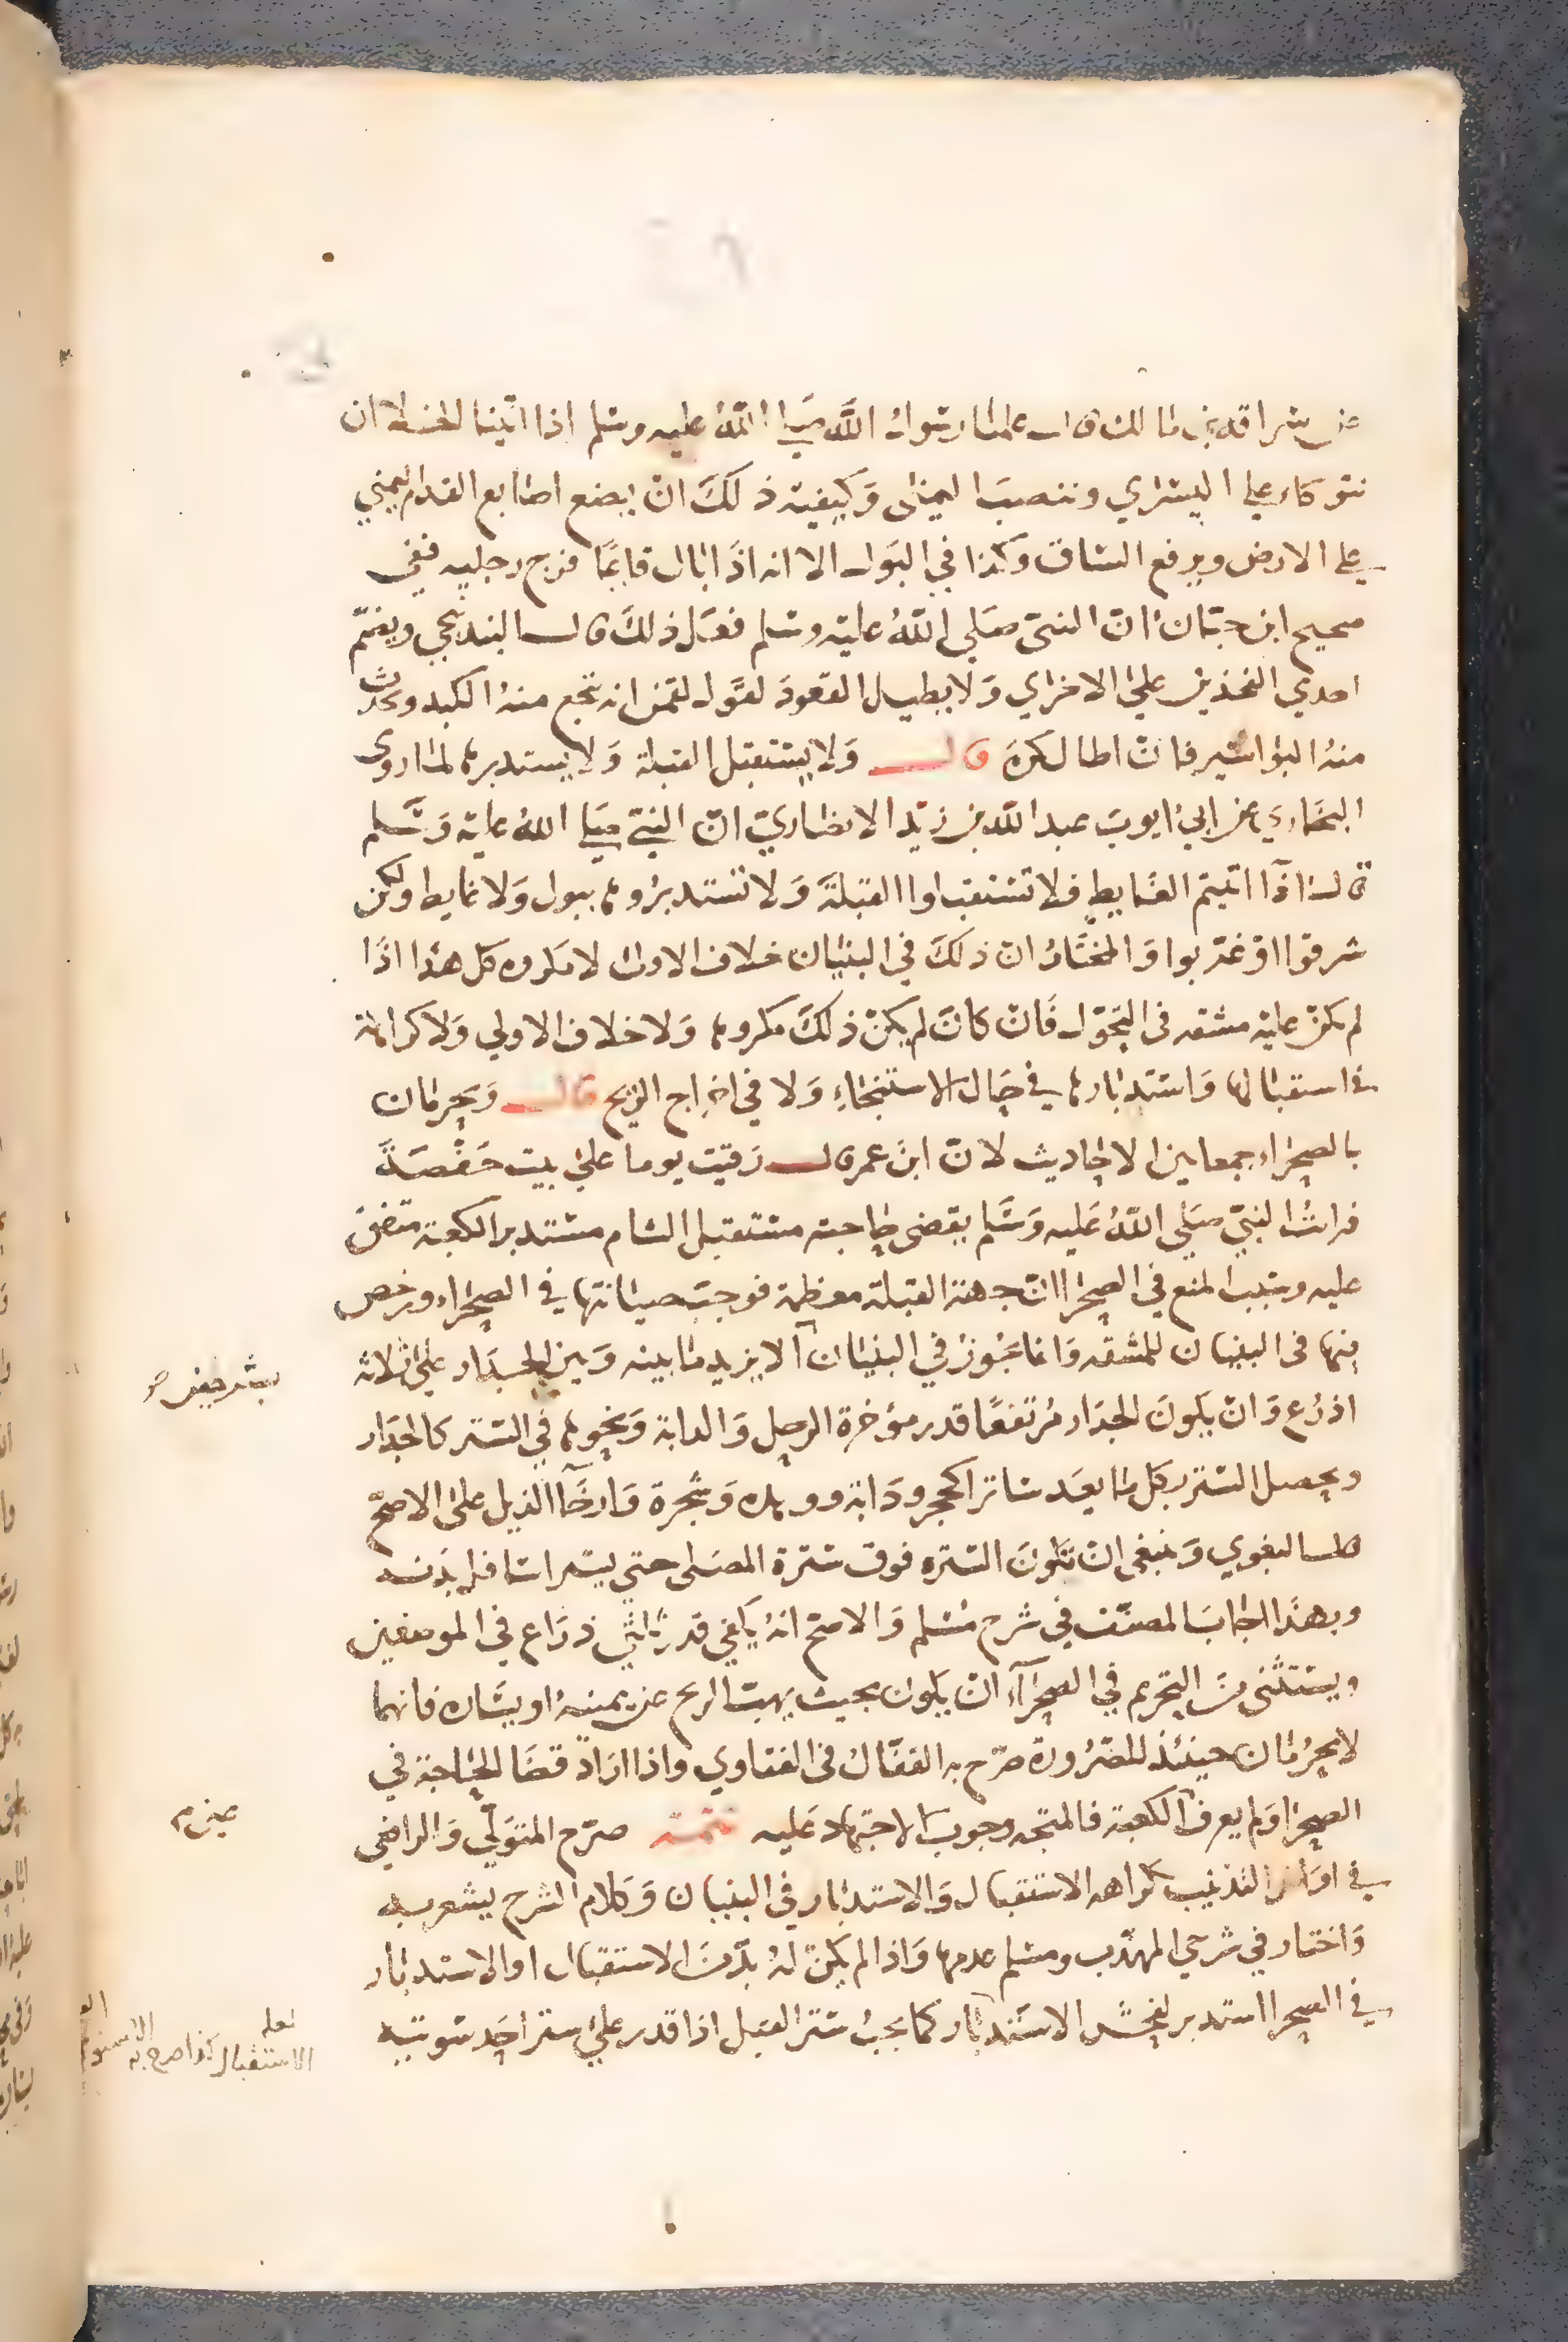 عن سراقة بن مالك قال علمنا رسول الله صلى الله عليه وسلم اذا اتينا الخلا ان
نتوكاء على اليسرى وننصب اليمنى وكيفية ذلك ان يضع اصابع القدم اليمني
على الارض ويرفع الساق وكذا في البول الا انه اذا بال قايما فرج رجليه ففي
صحيح ابن حبان ان النبي صلي الله عليه وسلم فعل ذلك قال البندنيجي ويضم
احدي الفخذين علي الاخري ولا يطيل القعود لقول لقمن انه تتجع منه الكبد ويحدث
منه البواسير فان اطال كره قال ولا يستقبل القبلة ولا يستدبرها لما روى
البخاري عن ابي ايوب عبد الله بن زيد الانصاري ان النبي صلى الله عليه وسلم
قال اذا اتيتم الغايط فلا تستقبلوا القبلة ولا تستدبروها ببول ولا غايط ولكن
شرقوا او غربوا والمختار ان ذلك في البنيان خلاف الاولى لا مكروه كل هذا اذا
لم يكن عليه مشقه في التحول فان كان لم يكن ذلك مكروها ولا خلاف الاولي ولا كراهة
في استقبالها واستدبارها في حال الاستنجاء ولا في اخراج الريح قال ويحرمان
بالصحراء جمعا بين الاحاديث لان ابن عمر قال رقيت يوما علي بيت حفصة
فرايت النبي صلي الله عليه وسلم يقضي حاجته مستقبل الشام مستدبر الكعبة متفق
عليه وسبب المنع في الصحرا ان جهة القبلة معظمة فوجبت صيانتها في الصحراء ورخص
فيها في البنيان للمشقه وانما يجوز في البنيان الا يزيد ما بينه وبين الجدار علي ثلاثه
اذرع وان يكون الجدار مرتفعا قدر مؤخرة الرحل والدابة ونحوها في الستر كالجدار
ويحصل الستر بكل ما يعد ساترا كحجر ودابة ووهده وشجرة وارخا الذيل على الاصح
قال البغوي وينبغي ان تكون الستره فوق سترة المصلى حتي يستر اسافل بدنه
وبهذا اجاب المصنف في شرح مسلم والاصح انه يكفي قدر ثلثي ذراع في الموضعين
ويستثنى من التحريم في الصحرآء ان يكون بحيث يهب الريح عن يمينه او يساره فانهما
لا يحرمان حينئذ للضرورة صرح به القفال في الفتاوي واذا اراد قضا الحاجة في
الصحرا ولم يعرف الكعبة فالمتجه وجوب الاجتهاد عليه تتمة صرح المتولي والرافعي
في اواخر التذنيب كراهه الاستقبال والاستدبار في البنيان وكلام الشرح يشعر به
واختار في شرحي المهذب ومسلم عدمها واذا لم يكن له بد من الاستقبال او الاستدبار
في الصحرا استدبر لفحش الاستدبار كما يجب ستر القبل اذا قدر علي ستر احد سوئتيه
لعله
الاستقبال كذا صرح به